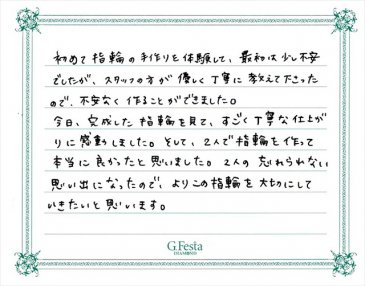 初めて指輪の手作りを体験して、最初は少し不安
でしたが、スタッフの方が優しく丁寧に教えて下さった
ので、不安なく作ることができました。
今日、完成した指輪を見て、すごく丁寧な仕上が
りに感動しました。そして、2人で指輪を作って
本当に良かったと思いました。2人の忘れられない
思い出になったので、よりこの指輪を大切にして
いきたいと思います。
G.Festa
DIAMOND